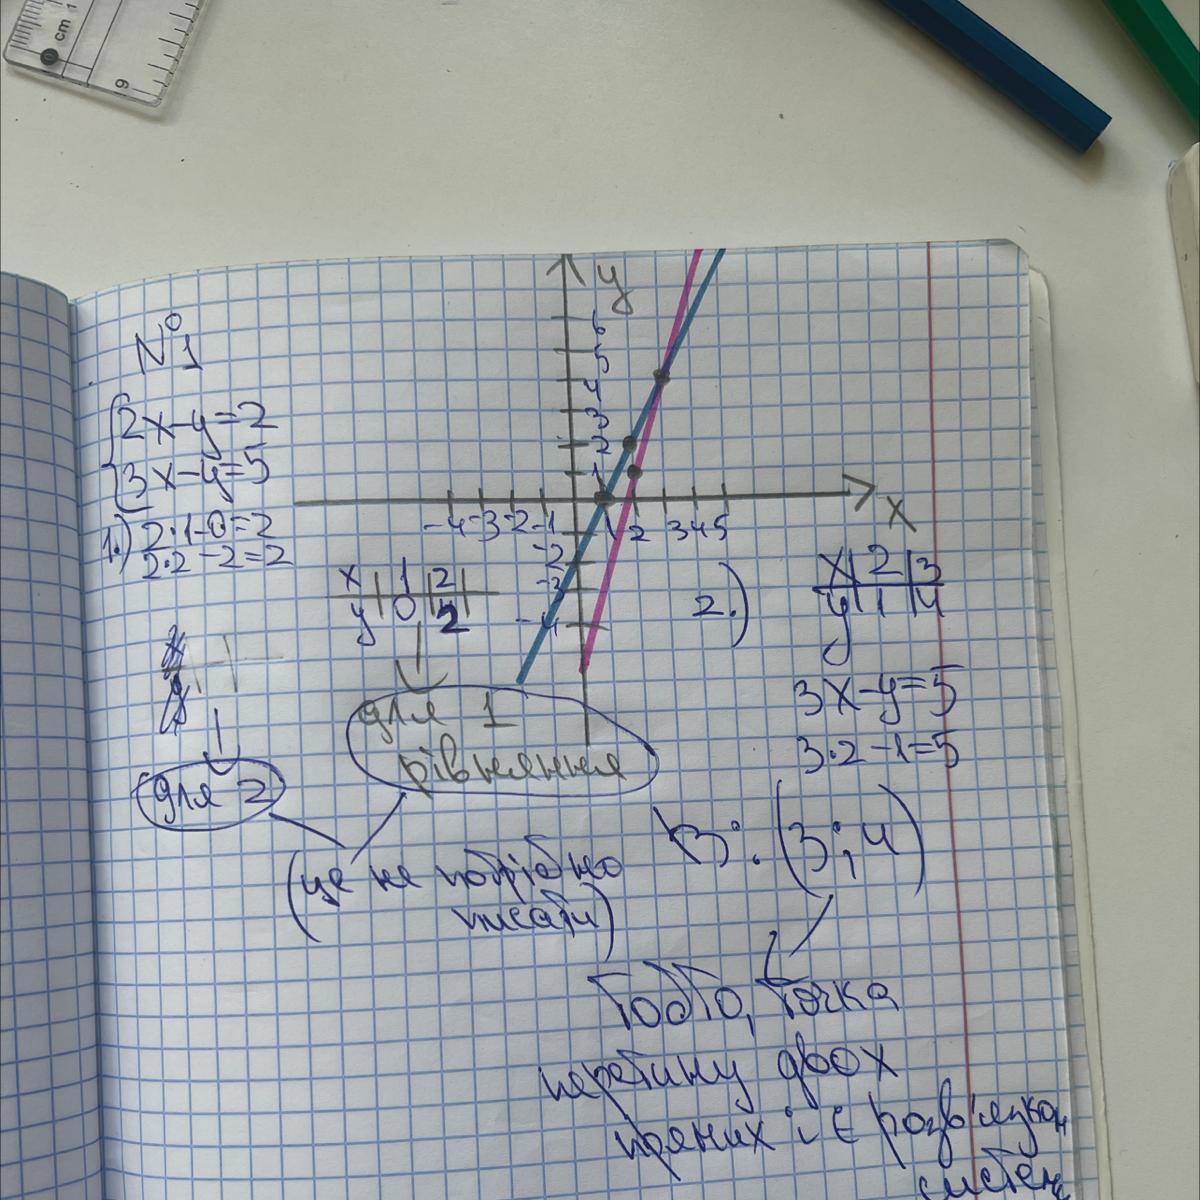 cm 1
9
№1
2x-y=2
3x-y=5
1.) 2·1-0=2
2·2-2=2
y
6
5
4
3
2
1
-4 -3 -2 -1 1 2 3 4 5
x
-2
-3
-4
x | 1 | 2 |
y | 0 | 2 |
для 1
рівняння
для 2
(це не потрібно
писати)
2.)
x | 2 | 3
y | 1 | 4
3x-y=5
3·2-1=5
В: (3;4)
Тобто, точка
перетину двох
прямих і є розв'язком
систем